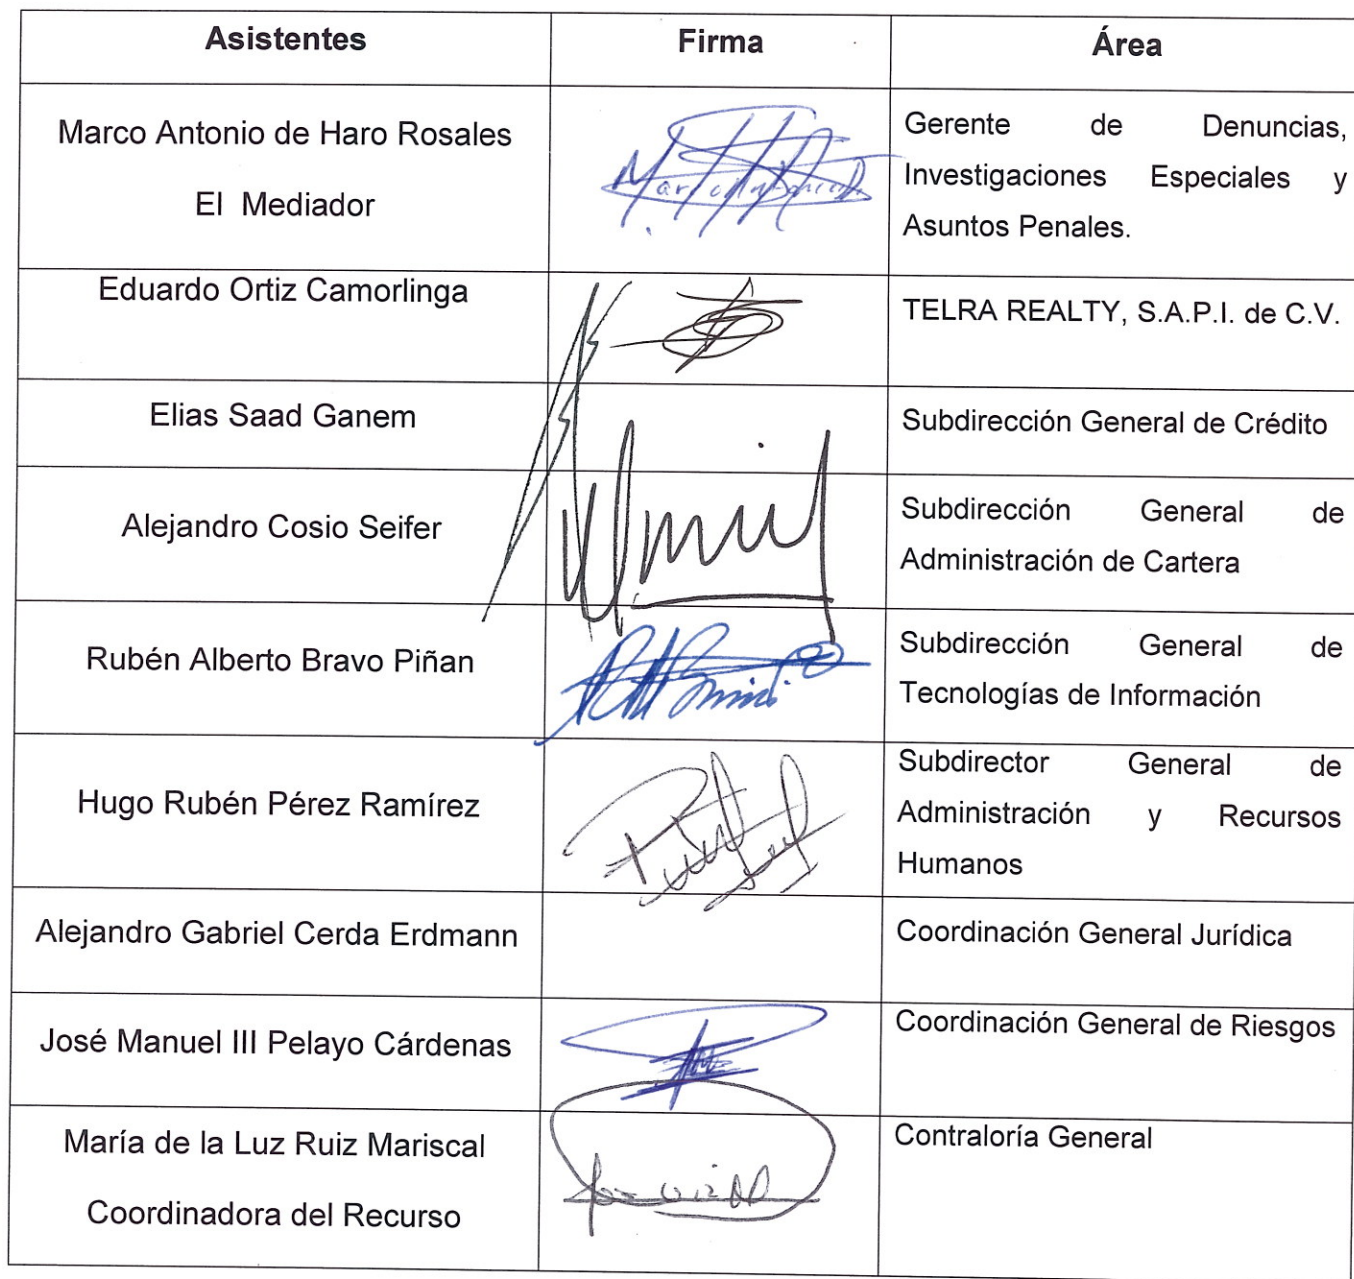 Asistentes
Firma
Área
Marco Antonio de Haro Rosales
El Mediador
Gerente de Denuncias,
Investigaciones Especiales y
Asuntos Penales.
Eduardo Ortiz Camorlinga
TELRA REALTY, S.A.P.I. de C.V.
Elias Saad Ganem
Subdirección General de Crédito
Alejandro Cosio Seifer
Subdirección General de
Administración de Cartera
Rubén Alberto Bravo Piñan
Subdirección General de
Tecnologías de Información
Hugo Rubén Pérez Ramírez
Subdirector General de
Administración y Recursos
Humanos
Alejandro Gabriel Cerda Erdmann
Coordinación General Jurídica
José Manuel III Pelayo Cárdenas
Coordinación General de Riesgos
María de la Luz Ruiz Mariscal
Coordinadora del Recurso
Contraloría General